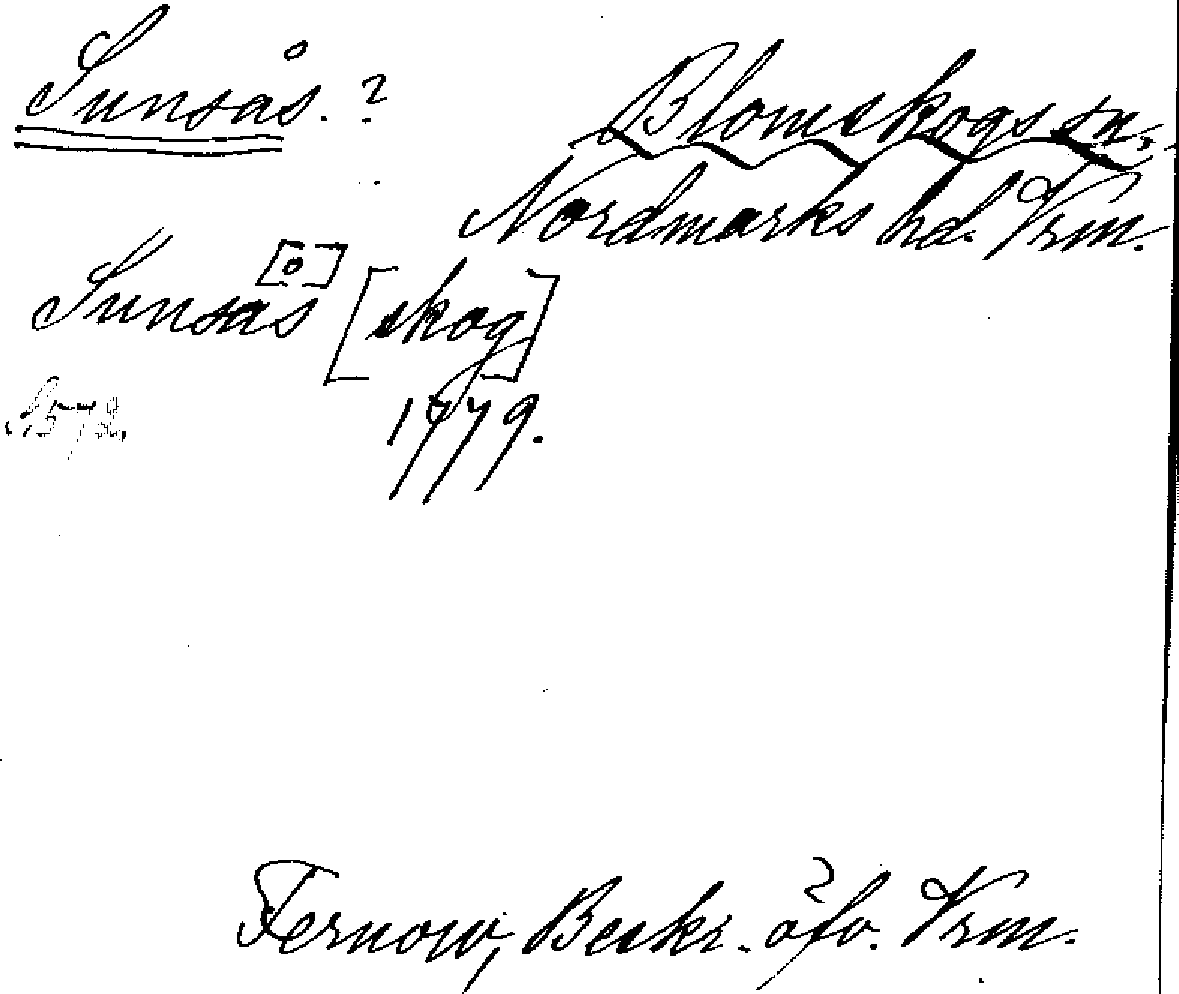 Sunsås. ?
Blomskogs sn.
Nordmarks hd. Vrm.
Sunsås [skog]
1779.
S. 572.
Fernow, Beskr. öfv. Vrm.